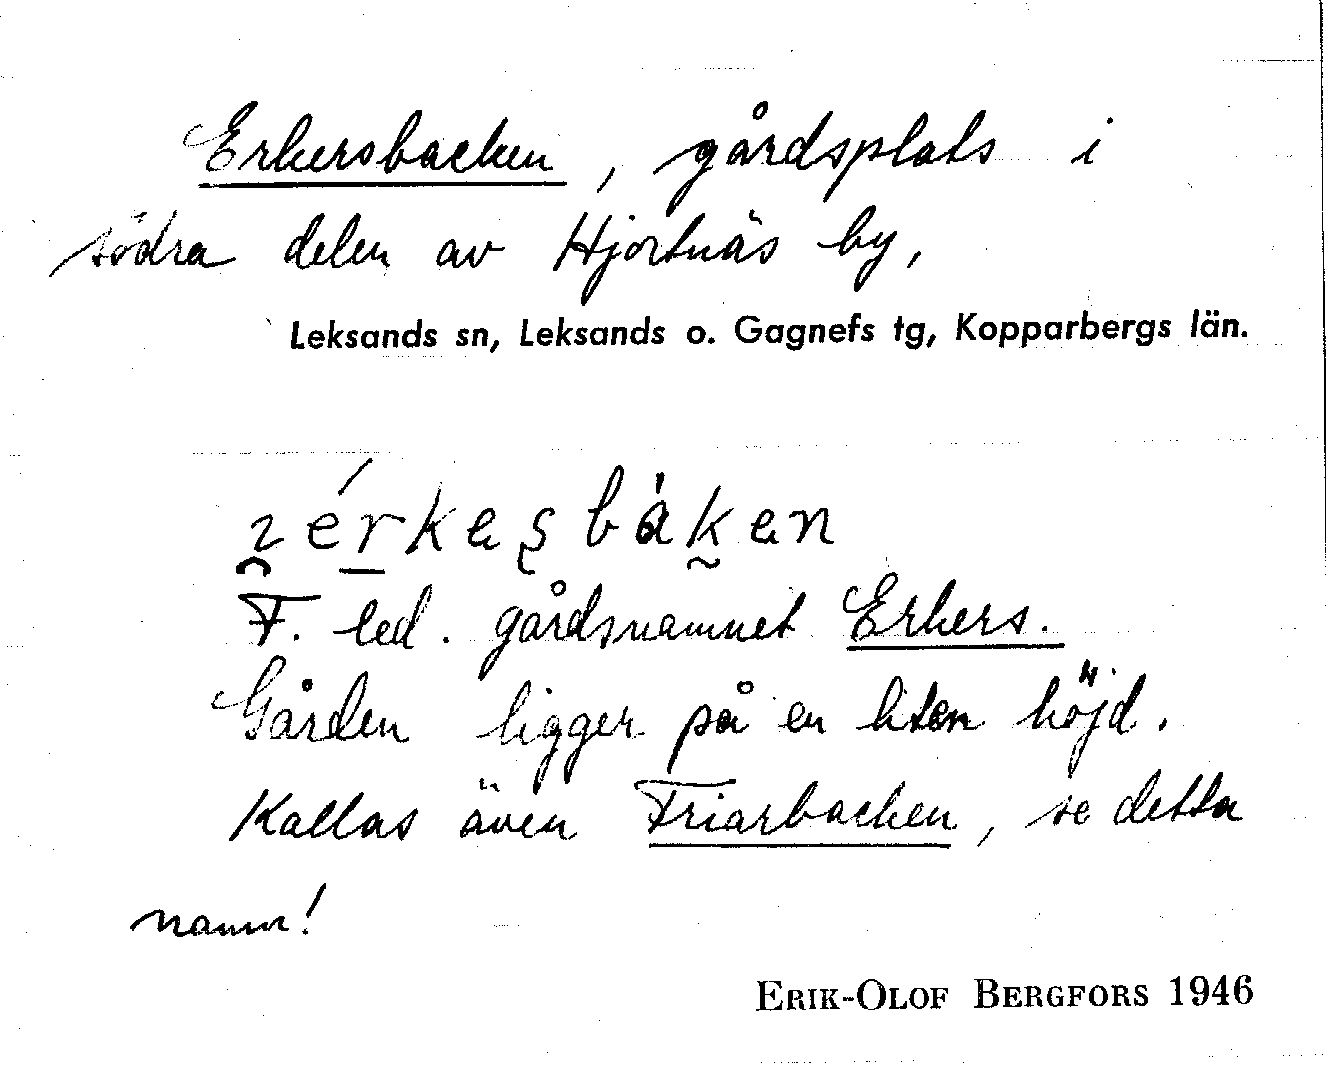 Erkersbacken, gårdsplats i
södra delen av Hjortnäs by,
Leksands sn, Leksands o. Gagnefs tg, Kopparbergs län.
érkesbàken
F. led. gårdsnamnet Erkers.
Gården ligger på en liten höjd.
Kallas även Friarbacken, se detta
namn!
ERIK-OLOF BERGFORS 1946